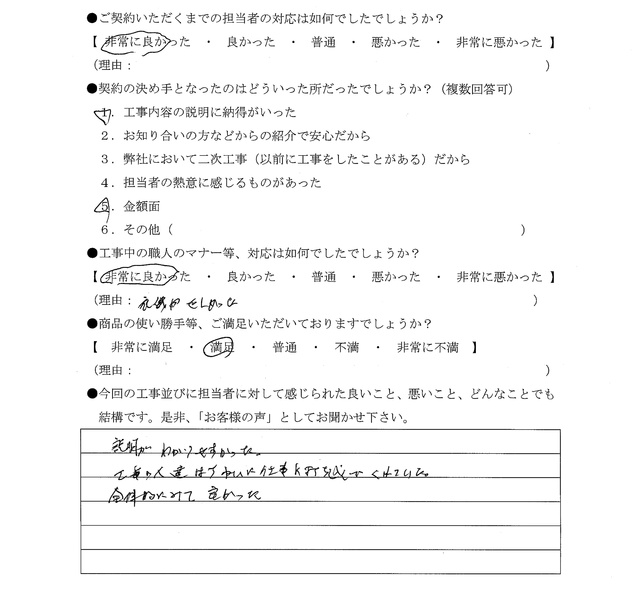 ●ご契約いただくまでの担当者の対応は如何でしたでしょうか？
【 非常に良かった ・ 良かった ・ 普通 ・ 悪かった ・ 非常に悪かった 】
（理由： ）
●契約の決め手となったのはどういった所だったでしょうか？（複数回答可）
１．工事内容の説明に納得がいった
２．お知り合いの方などからの紹介で安心だから
３．弊社において二次工事（以前に工事をしたことがある）だから
４．担当者の熱意に感じるものがあった
５．金額面
６．その他（ ）
●工事中の職人のマナー等、対応は如何でしたでしょうか？
【 非常に良かった ・ 良かった ・ 普通 ・ 悪かった ・ 非常に悪かった 】
（理由： ）
●商品の使い勝手等、ご満足いただいておりますでしょうか？
【 非常に満足 ・ 満足 ・ 普通 ・ 不満 ・ 非常に不満 】
（理由： ）
●今回の工事並びに担当者に対して感じられた良いこと、悪いこと、どんなことでも
結構です。是非、「お客様の声」としてお聞かせ下さい。
説明がわかりやすかった。
工事の人達は
全体的にみて良かった